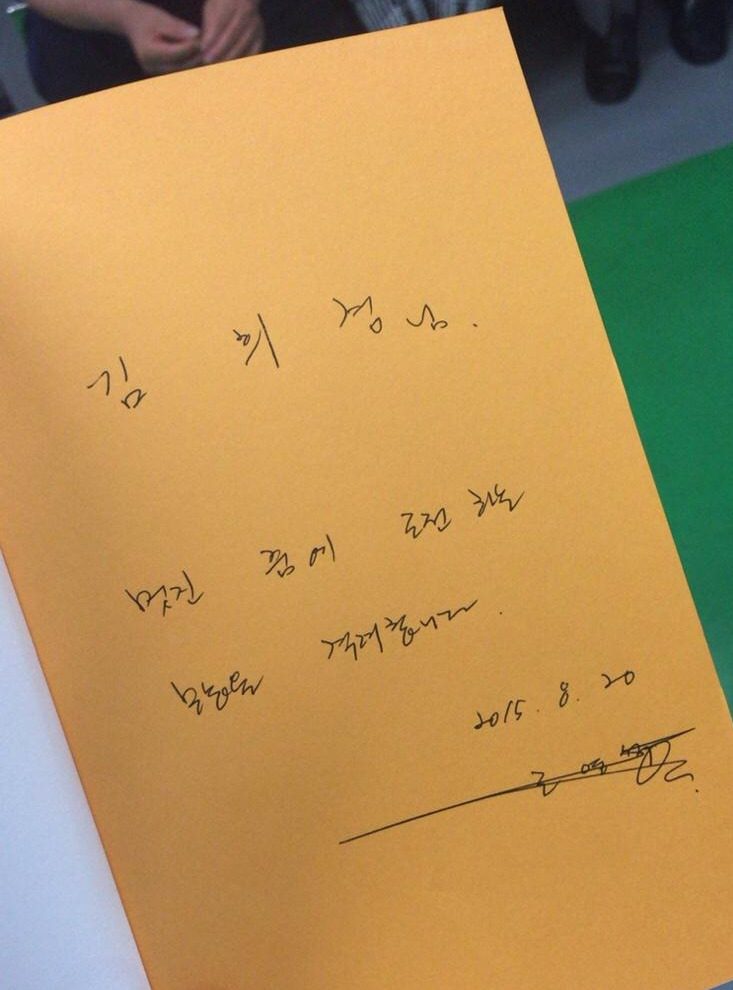 김 희 정 님.
멋진 꿈에 도전하는
격려합니다.
2015. 8. 20